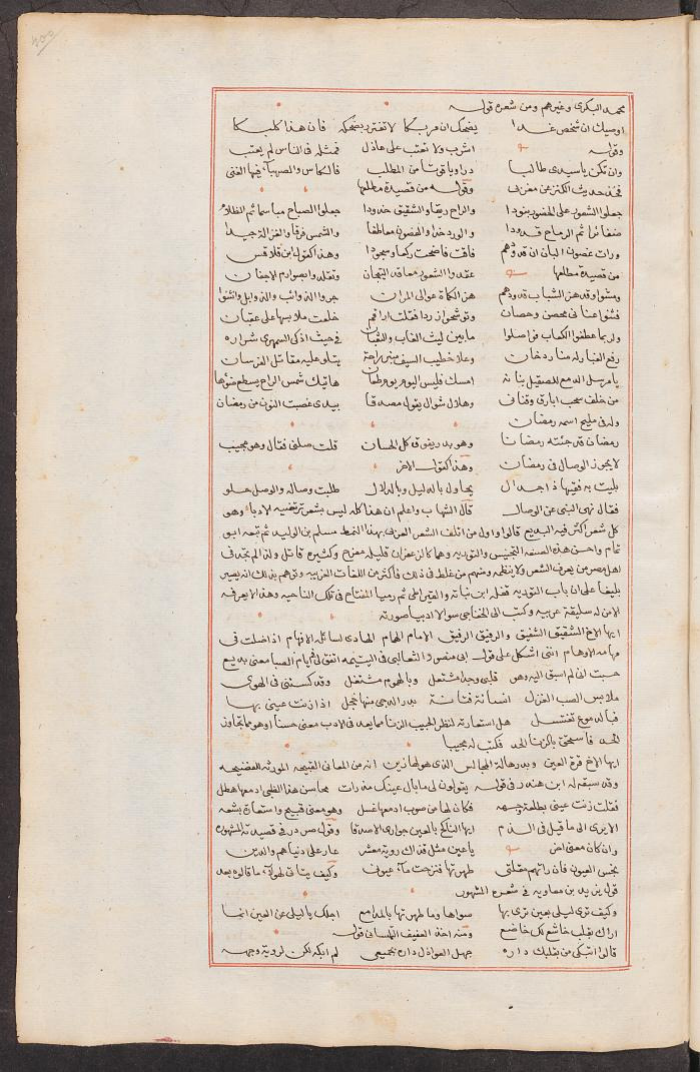 محمد البكرى وغيرهم ومن شعره قوله
اوصيك ان شخص غدا يضحك ان مربكا لا تغترر بضحكه فان هذا كلبكا
وقوله اشرب ولا تعتب على عاذل فمثله فى الناس لم يعتب
وان تكن يا سيدى طالبا من المطلب فالكاس والصهبا فيها الغنى
فخذ حديث الكنز عن مغربى وقوله من قصيدة مطلعها
جعلوا الشعور على الخصور بنودا والراح ريقا والشقيق خدودا جعلوا الصباح مباسما ثم الظلام
ضفائرا ثم الرماح قدودا والورد خدا والغصون معاطفا والشمس فرقا والغزالة جيدا
ورات غصون البان ان قدودهم فاقت فاضحت ركعا وسجودا وهذا كقول ابن قلاقس
من قصيدة مطلعها عقدوا الشعور معاقد التيجان وتقلدوا بصوارم الاجفان
ومشوا وقد هز الشباب قدودهم هز الكماة عوالى المران جروا الذوائب والذوابل وانثنوا
فثنوا عنانى محصن وحصان وتوشحوا زردا فقلت اراقم خلعت ملابسها على عقبان
ولربما عطفوا الكعاب فواصلوا ما بين ليث الغاب والثعبان فى حيث اذكى السمهرى شراره
رفع الغبار له منار دخان وعلا خطيب السيف منبر راحة يتلو عليه مقاتل الفرسان
يا مرسل الدمع للصقيل بنانه امسك فليس اليوم يوم طعان هاتيك شمس الراح يسطع ضوها
من خلف سحب ابارق وقناف وهلال شوال يقول مصدقا بيدى غصبت النون من رمضان
وله فى مليح اسمه رمضان
رمضان قد جئته رمضانا وهو بدر يفوق كل الحسان قلت صلنى فقال وهو مجيب
لا يجوز الوصال فى رمضان وهذا كقول الاخر
بليت به فقيها ذا جدال يجادل بالدليل وبالدلال طلبت وصاله والوصل حلو
فقال نهى النبى عن الوصال قال الشهاب واعلم ان هذا كله ليس بشعر ترتضيه الادبا وهو
كل شعر اكثر فيه البديع قالوا واول من اتلف الشعر العربى بهذا النمط مسلم بن الوليد ثم تبعه ابو
تمام واحسن هذه الصنعة التجنيس والتوريه وهما كالزعفران قليله مفرح وكثيره قاتل ولذا لم تجد فى
اهل مصر من يعرف الشعر ولا ينظمه ومنهم من غلط فى ذلك فاكثر من اللغات الغريبه وتوهم بذلك انه يصير
بليغا على ان باب التوريه قفله ابن نباتة والقيراطى ثم رميا المفتاح فى تلك الناحيه وهذا لا يعرفه
الا من له سليقة عربيه وكتب الى الخفاجى سوالا ادبيا صورته
ايها الاخ الشقيق الشفيق والرفيق الرفيق الامام الهمام الهادى لسائله الافهام اذا ضلت فى
مهامه الاوهام اننى اشكل على قول ابى منصور الثعالبى فى اليتيمه اتفق لى فى ايام الصبا معنى بديع
حسبت انى لم اسبق اليه وهو قلبى وجدا مشتعل وبالهموم مشتغل وقد كستنى فى الهوى
ملابس الصب الغزل انسانة فتانة بدر الدجى منها خجل اذا زنت عينى بها
فبالدموع تغتسل هل استعارته لنظر الحبيب الزنا مما يعد فى الادب معنى حسنا او هو مما تجاوز
الحد فاستحق بالزنا الحد فكتب له مجيبا
ايها الاخ قرة العين وبدر هالة المجالس الذى هو لها زين انه من المعانى القبيحه المورثة للفضيحه
وقد سبقه له ابن هندو فى قوله يقولون لى ما بال عينك مذ رات محاسن هذا الظبى ادمعها هطل
فقلت زنت عينى بطلعة وجهه فكان لها من صوب ادمعها غسل وهو معنى قبيح واستعارة بشعه
الا يرى الى ما قيل فى الذم ايها الناكح بالعين جوارى الاصدقا وقول صردر فى قصيدته المشهوره
وان كان معنى اخر يا عين مثل قذاك رؤية معشر عار على دنياهم والدين
نجس العيون فان راتهم مقلتى طهرتها فنزحت ماء عيونى وكيف يتاتى لهولاء ما قالوه بعد
قول يزيد بن معاويه فى شعره المشهور
وكيف ترى ليلى بعين ترى بها سواها وما طهرتها بالمدامع اجلك يا ليلى عن العين انما
اراك بقلب خاشع لك خاضع ومنه اخذ العفيف التلمسانى قوله
قالوا اتبكى من بقلبك داره جهل العواذل داره بجميعى لم ابكه لكن لرؤية وجهه